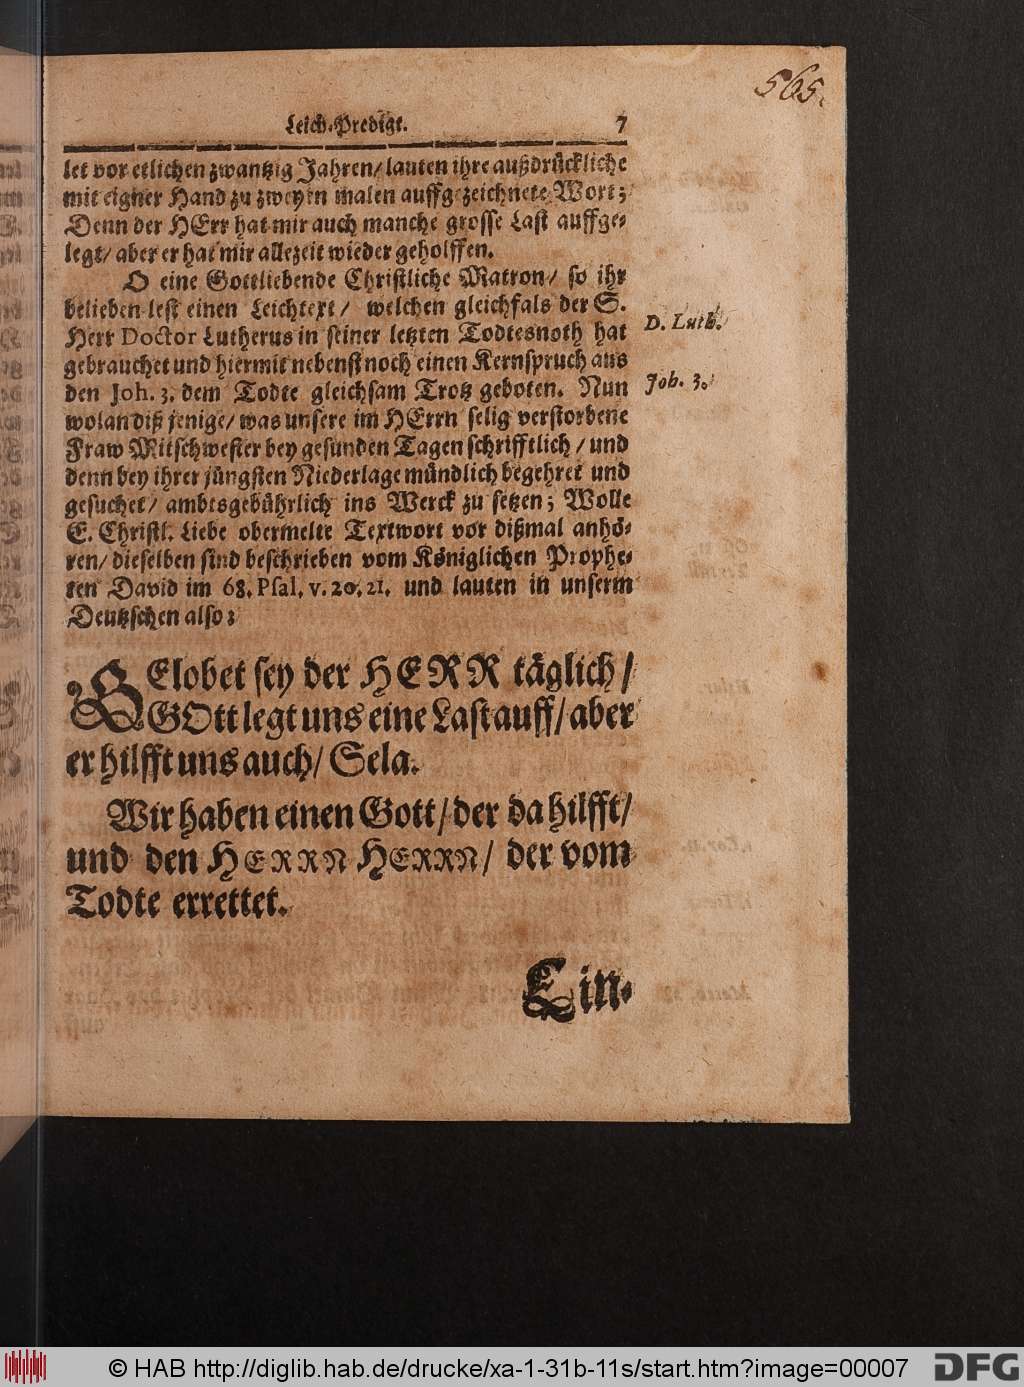 565.
Leich-Predigt. 7
let vor etlichen zwantzig Jahren/ lauten ihre außdrückliche
mit eigner Hand zu zweyen malen auffgezeichnete Wort;
Denn der HErr hat mir auch manche grosse Last auffge-
legt/ aber er hat mir allezeit wieder geholffen.
O eine Gottliebende Christliche Matron/ so ihr
belieben lest einen Leichtext/ welchen gleichfals der S.
Herr Doctor Lutherus in seiner letzten Todtesnoth hat
D. Luth.
gebrauchet und hiermit nebenst noch einen Kernspruch aus
den Joh. 3. dem Todte gleichsam Trotz geboten. Nun
Joh. 3.
wolan diß jenige/ was unsere im HErrn selig verstorbene
Fraw Mitschwester bey gesunden Tagen schrifftlich/ und
denn bey ihrer jüngsten Niederlage mündlich begehret und
gesuchet/ ambtsgebührlich ins Werck zu setzen; Wolle
E. Christl. Liebe obermelte Textwort vor dißmal anhö-
ren/ dieselben sind beschrieben vom Königlichen Prophe-
ten David im 68. Psal. v. 20. 21. und lauten in unserm
Deutzschen also:
GElobet sey der HERR täglich/
GOtt legt uns eine Last auff/ aber
er hilfft uns auch/ Sela.
Wir haben einen Gott/ der da hilfft/
und den HERRN HERRN/ der vom
Todte errettet.
Ein-
© HAB http://diglib.hab.de/drucke/xa-1-31b-11s/start.htm?image=00007
DFG